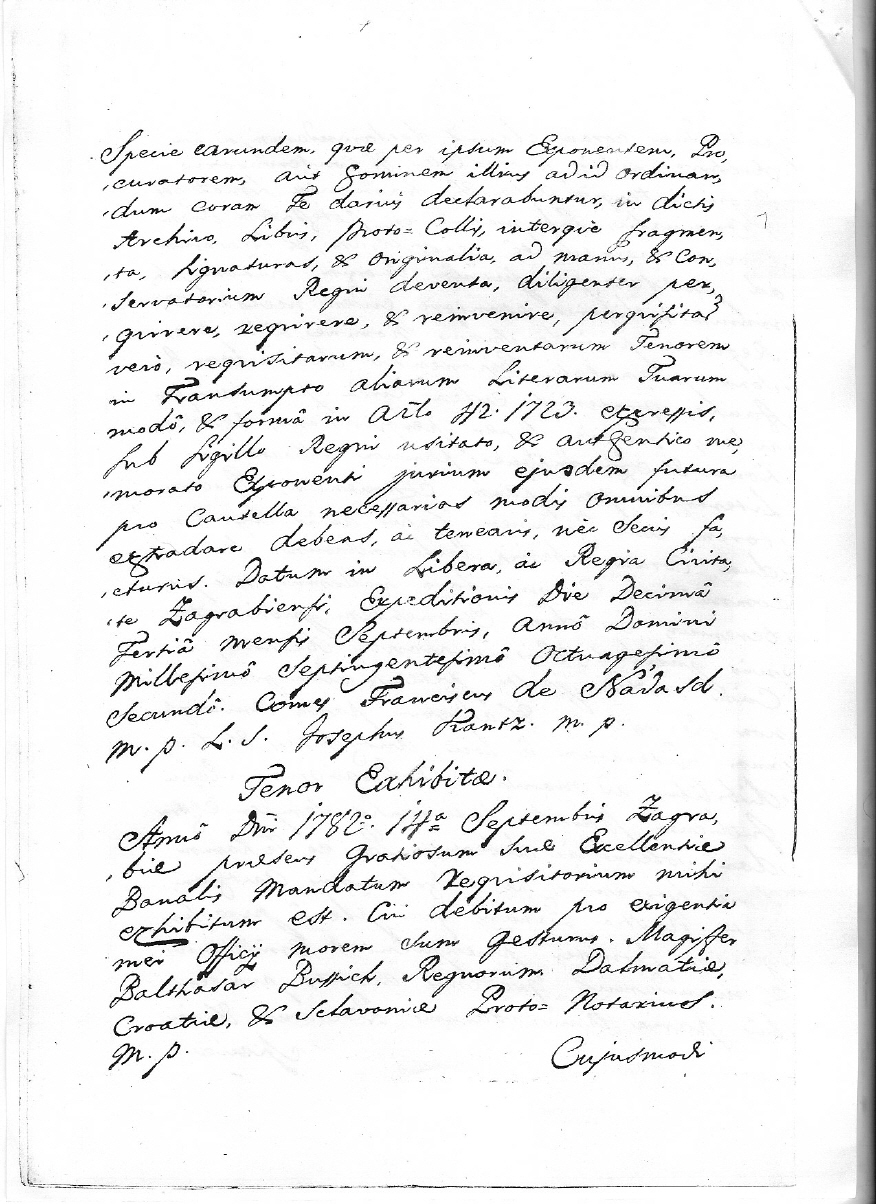 Specie earundem, quæ per ipsum Exponentem, Pro,
,curatorem, aut Hominem illius ad id Ordinan,
,dum coram Te darius declarabuntur, in dictis
Archivo, Libris, Proto=Collis, interqve fragmen,
,ta, Signaturas, & Originalia, ad manus, & Con,
,servatorium Regni deventa, diligenter per,
,qvirere, reqvirere, & reinvenire, perqvisita℥
vero, reqvisitarum, & reinventarum Tenorem
in Transumpto aliarum Literarum Tuarum
modô, & formâ in Artlo 42. 1723. expressis,
sub Sigillo Regni usitato, & authentico me,
,morato Exponenti jurium ejusdem futura
pro Cautella necessarias modis Omnibus
extradare debeas, ac tenearis, nec Secus fa,
,cturus. Datum in Libera, ac Regia Civita,
,te Zagrabiensi, Expeditionis Die Decimâ
Tertiâ Mensis Septembris, Annô Domini
Millesimô Septingentesimô Octuagesimô
Secundô. Comes Franciscus de Nádasd.
m. p. L. S. Josephus Krantz. m. p.
Tenor Exhibitæ.
Annô Dni 1782º. 14ª Septembris Zagra,
,biæ præsens Gratiosum Suæ Excellentiæ
Banalis Mandatum Reqvisitorium mihi
exhibitum est. Cui debitum pro exigentia
mei Officij morem sum gesturus. Magister
Balthasar Bussich, Regnorum Dalmatiæ,
Croatiæ, & Sclavoniæ Proto=Notarius.
m. p.
Cujusmodi